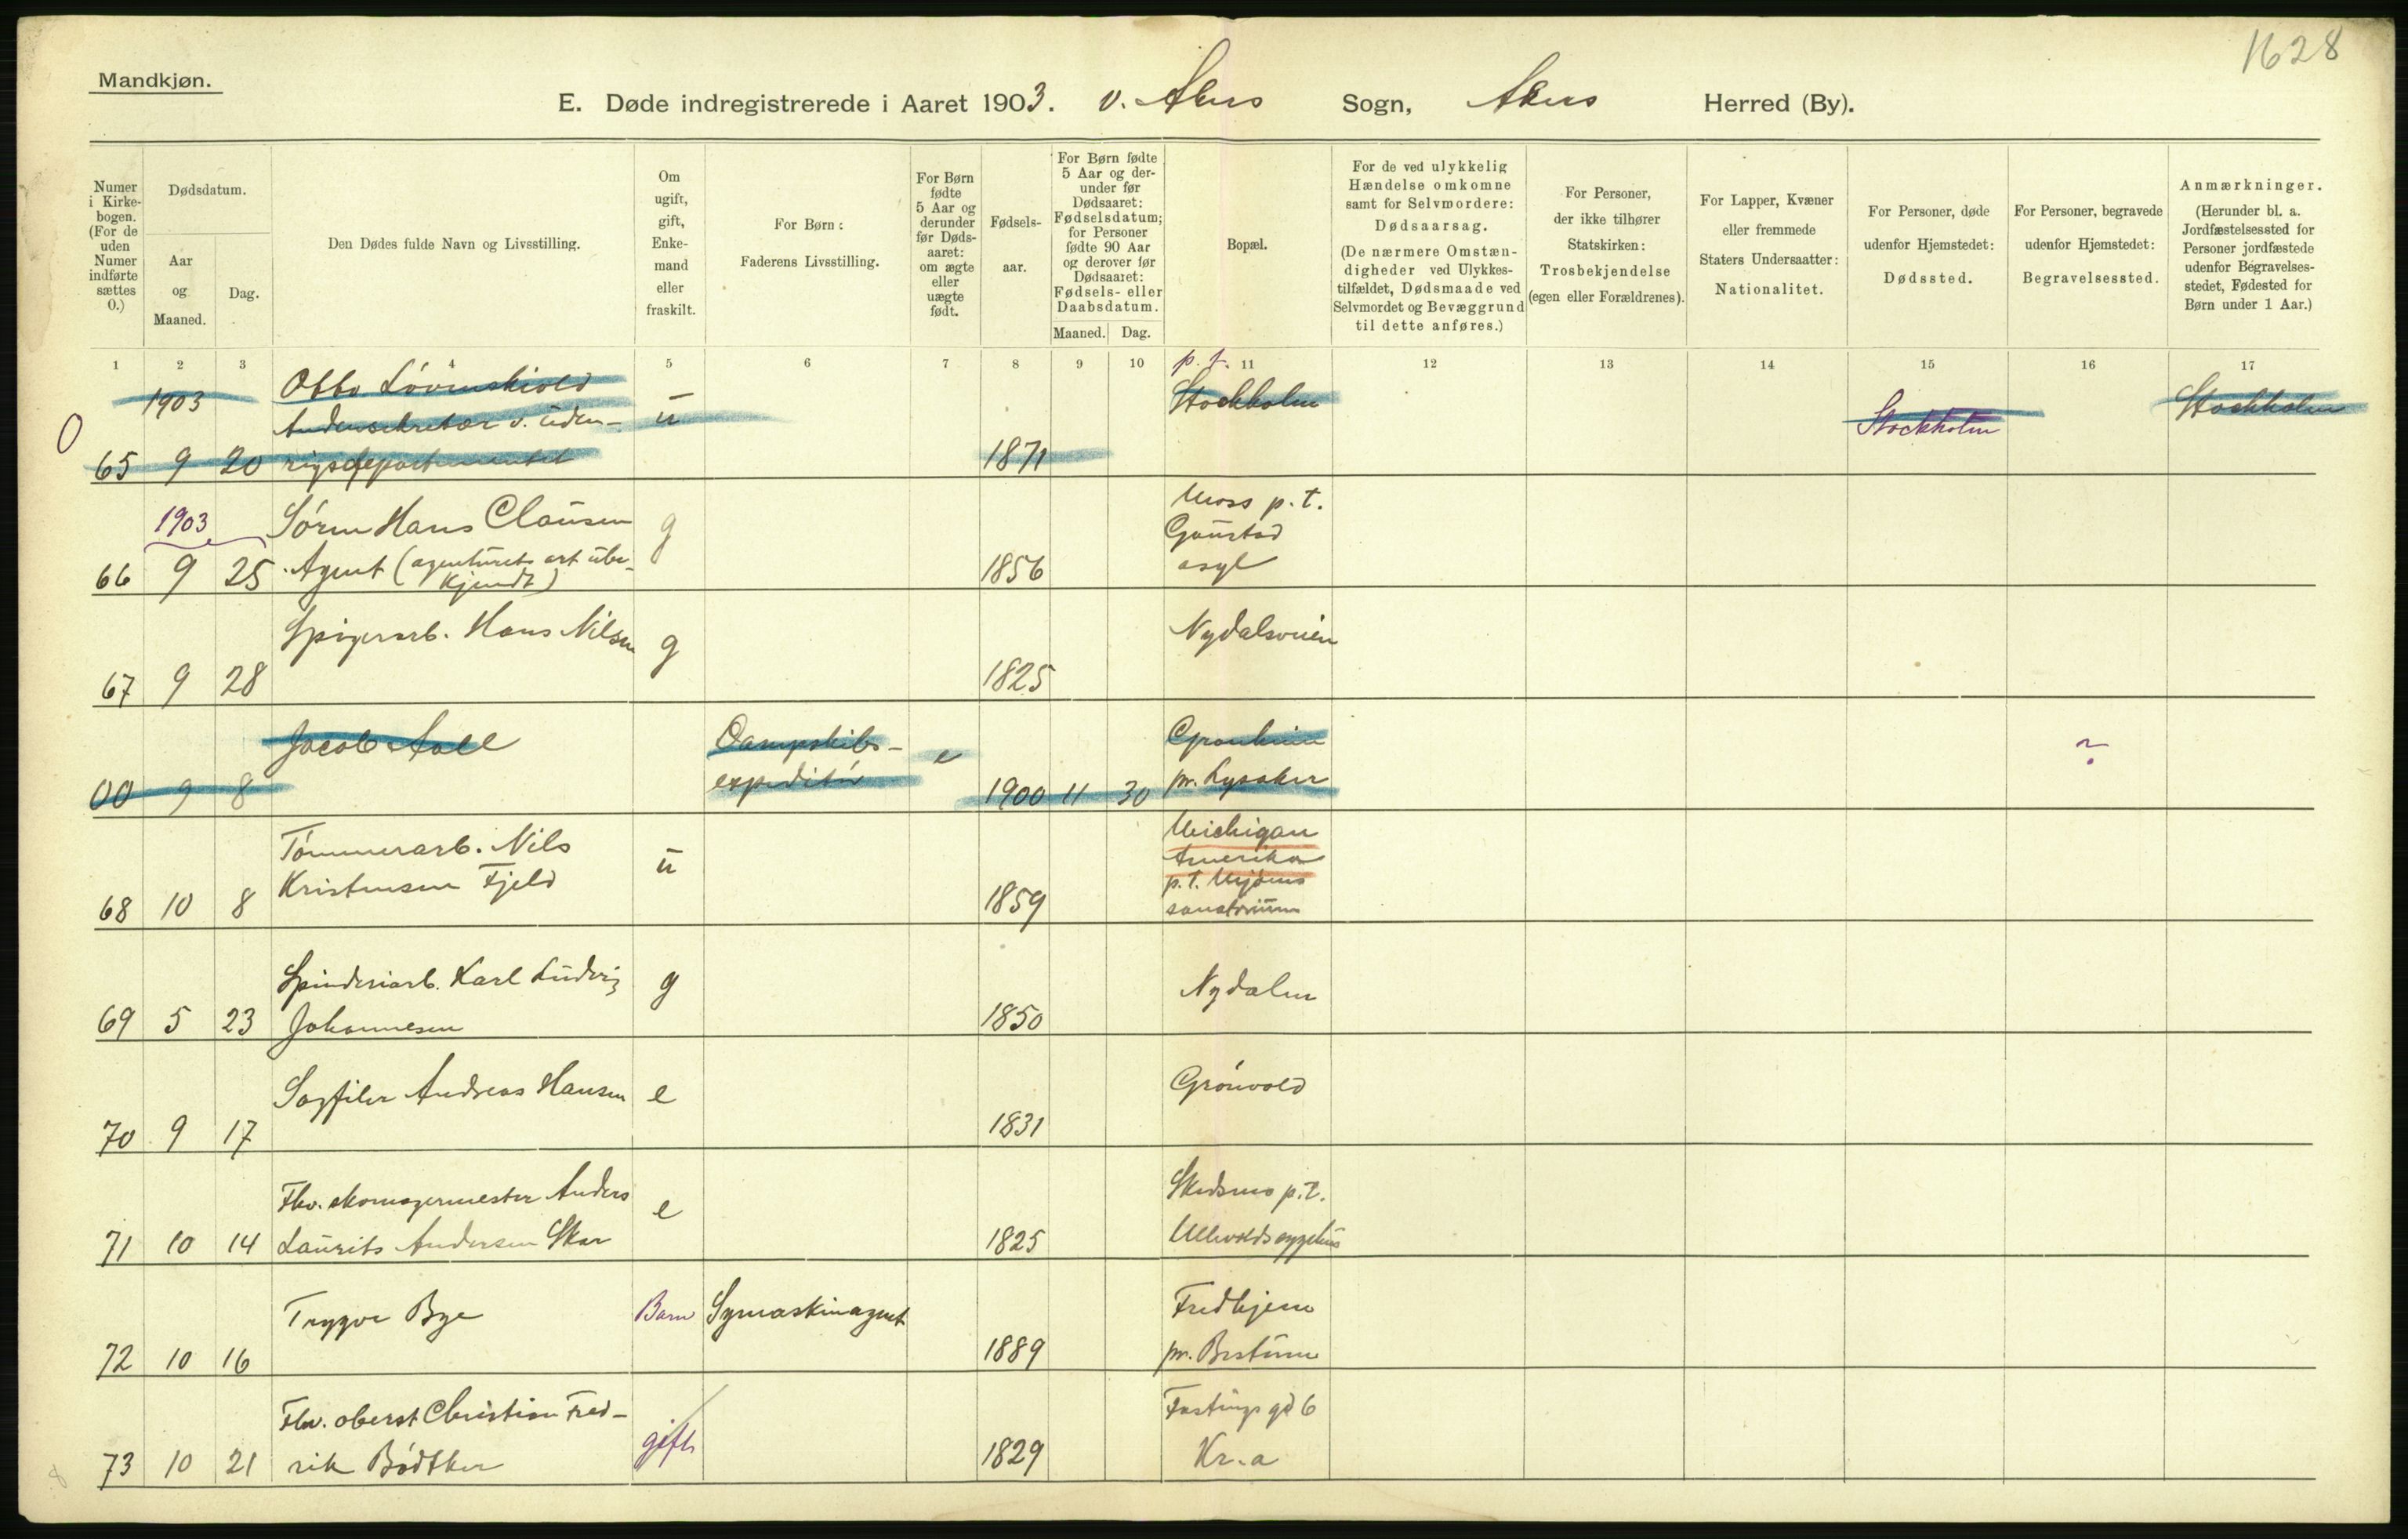 1628
Mandkjøn.
E. Døde indregistrerede i Aaret 1903. v. Akers Sogn, Akers Herred (By).
Numer i Kirkebogen. (For de uden Numer indførte sættes 0.)
Dødsdatum.
Aar og Maaned.
Dag.
Den Dødes fulde Navn og Livsstilling.
Om ugift, gift, Enkemand eller fraskilt.
For Børn:
Faderens Livsstilling.
For Børn fødte 5 Aar og derunder før Dødsaaret: om ægte eller uægte født.
Fødselsaar.
For Børn fødte 5 Aar og derunder før Dødsaaret: Fødselsdatum; for Personer fødte 90 Aar og derover før Dødsaaret: Fødsels- eller Daabsdatum.
Maaned. Dag.
Bopæl.
For de ved ulykkelig Hændelse omkomne samt for Selvmordere: Dødsaarsag.
(De nærmere Omstændigheder ved Ulykkestilfældet, Dødsmaade ved Selvmordet og Bevæggrund til dette anføres.)
For Personer, der ikke tilhører Statskirken: Trosbekjendelse (egen eller Forældrenes).
For Lapper, Kvæner eller fremmede Staters Undersaatter: Nationalitet.
For Personer, døde udenfor Hjemstedet: Dødssted.
For Personer, begravede udenfor Hjemstedet: Begravelsessted.
Anmærkninger.
(Herunder bl. a. Jordfæstelsessted for Personer jordfæstede udenfor Begravelsesstedet, Fødested for Børn under 1 Aar.)
1 2 3 4 5 6 7 8 9 10 11 12 13 14 15 16 17
1903 Otto Løvenskiold p. t.
0 Andensekretær v. uden- u Stockholm Stockholm Stockholm
65 9 20 rigsdepartementet 1871
1903 Sören Hans Clausen g Moss p. t.
Gaustad
66 9 25 Agent (agenturets art ube- 1856 asyl
kjendt)
Spigerarb. Hans Nilsen g Nydalsveien
67 9 28 1825
Jacob Aall Dampskibs- e ?
00 9 8 expeditör 1900 11 30 pr. Lysaker
Tömmerarb. Nils u Michigan
Kristensen Fjeld Amerika
68 10 8 1859 p. t. Mjöens
sanatorium
Spinderiarb. Karl Ludvig g Nydalen
69 5 23 Johannesen 1850
Sagfiler Andreas Hansen e Grönvold
70 9 17 1831
Fhv. skomagermester Anders e Skedsmo p. t.
71 10 14 Laurits Andersen Skar 1825 Ullevolds sygehus
Trygve Bye Barn Symaskinagent Fredhjem
72 10 16 1889 pr. Bestum
Fhv. oberst Christian Fred- gift Fastings gd 6
73 10 21 rik Bödtker 1829 Kr.a
8